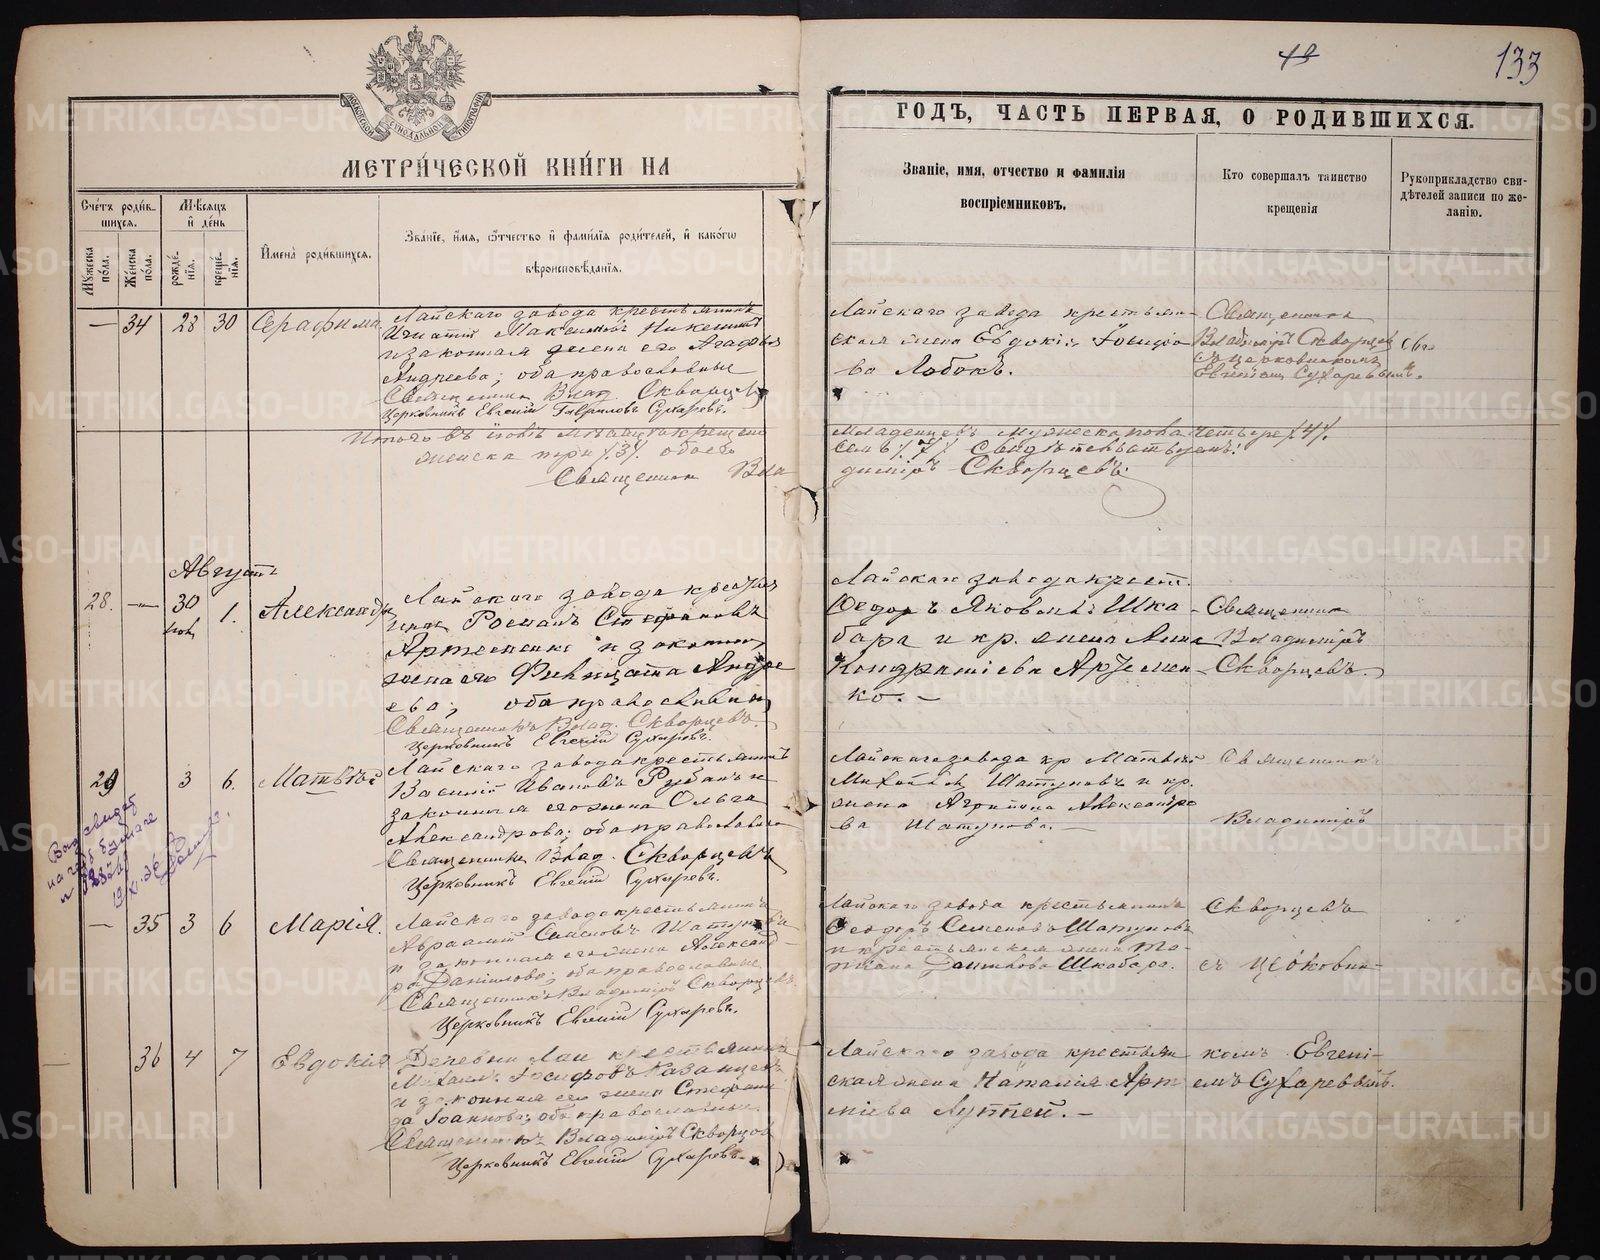 48
133
МОСКОВСКОЙ СѴНОДАЛЬНОЙ ТИПОГРАФІИ
МЕТРИ́ЧЕСКОЙ КНИ́ГИ НА
ГОДЪ, ЧАСТЬ ПЕРВАЯ, О РОДИВШИХСЯ.
Сче́тъ роди́вшихся.
Му́жеска по́ла.
Же́нска по́ла.
Мѣ́сяцъ и де́нь
рожде́нія.
креще́нія.
Имена́ роди́вшихся.
Зва́ніе, и́мя, о́тчество и фами́лія роди́телей, и како́гѡ
вѣроисповѣ́данія.
Званіе, имя, отчество и фамилія
воспріемниковъ.
Кто совершалъ таинство
крещенія
Рукоприкладство сви-
дѣтелей записи по же-
ланію.
— 34 28 30 Серафима
Лайскаго завода крестьянинъ
Игнатій Максимовъ Никешинъ
и законная жена его Агафья
Андреева; оба православные
Священникъ Влад. Скворцевъ
Церковникъ Евгеній Гавриловъ Сухаревъ.
Лайскаго завода крестьян-
ская жена Евдокія Іосифо-
ва Лобокъ.
Священникъ
Владиміръ Скворцевъ
съ церковникомъ
Евгеніемъ Сухаревымъ.
Итого въ іюлѣ мѣсяцѣ крещено
женска три /3/ обоего
Священникъ Вла
младенцевъ мужеска пола четыре /4/
семь /7/ Свидѣтельствуемъ:
диміръ Скворцевъ.
Августъ
28. — 30 іюл. 1. Александръ
Лайскаго завода крестья
нинъ Романъ Стефановъ
Артеменко и законная
жена его Фивицата Андре
ева; оба православны
Священникъ Влад. Скворцевъ.
Церковникъ Евгеній Сухаревъ.
Лайскаго завода крест.
Ѳедоръ Яковлевъ Шка-
бара и кр. жена Анна
Кондратіева Артемен-
ко. —
Священникъ
Владиміръ
Скворцевъ.
29 3 6. Матвѣй
Лайскаго завода крестьянинъ
Василій Ивановъ Рубанъ и
законная его жена Ольга
Александрова; оба православные
Священникъ Влад. Скворцевъ
Церковникъ Евгеній Сухаревъ.
Лайскаго завода кр. Матвѣй
Михайловъ Шатуновъ и кр.
жена Агрипина Александро
ва Шатунова. —
Священникъ
Владиміръ
— 35 3 6 Марія.
Лайскаго завода крестьянинъ
Авраамій Шатуновъ
и законная его жена Александ-
ра Данилова; оба православные
Священникъ Владиміръ Скворцевъ.
Церковникъ Евгеній Сухаревъ.
Лайскаго завода крестьянинъ
Ѳеодоръ Семеновъ Шатуновъ
и крестьянская жена Та-
тіана Данилова Шкабара.
Скворцевъ
съ церковни-
36 4 7 Евдокія
Деревни Лаи крестьянинъ
Михаилъ Іосифовъ Казанцевъ
и законная его жена Стефани
да Іоаннова; оба православные.
Священникъ Владиміръ Скворцов
Церковникъ Евгеній Сухаревъ.
Лайскаго завода крестьян-
ская жена Наталія Арт
міева Луппей. —
комъ Евгені-
емъ Сухаревымъ.
METRIKI.GASO-URAL.RU